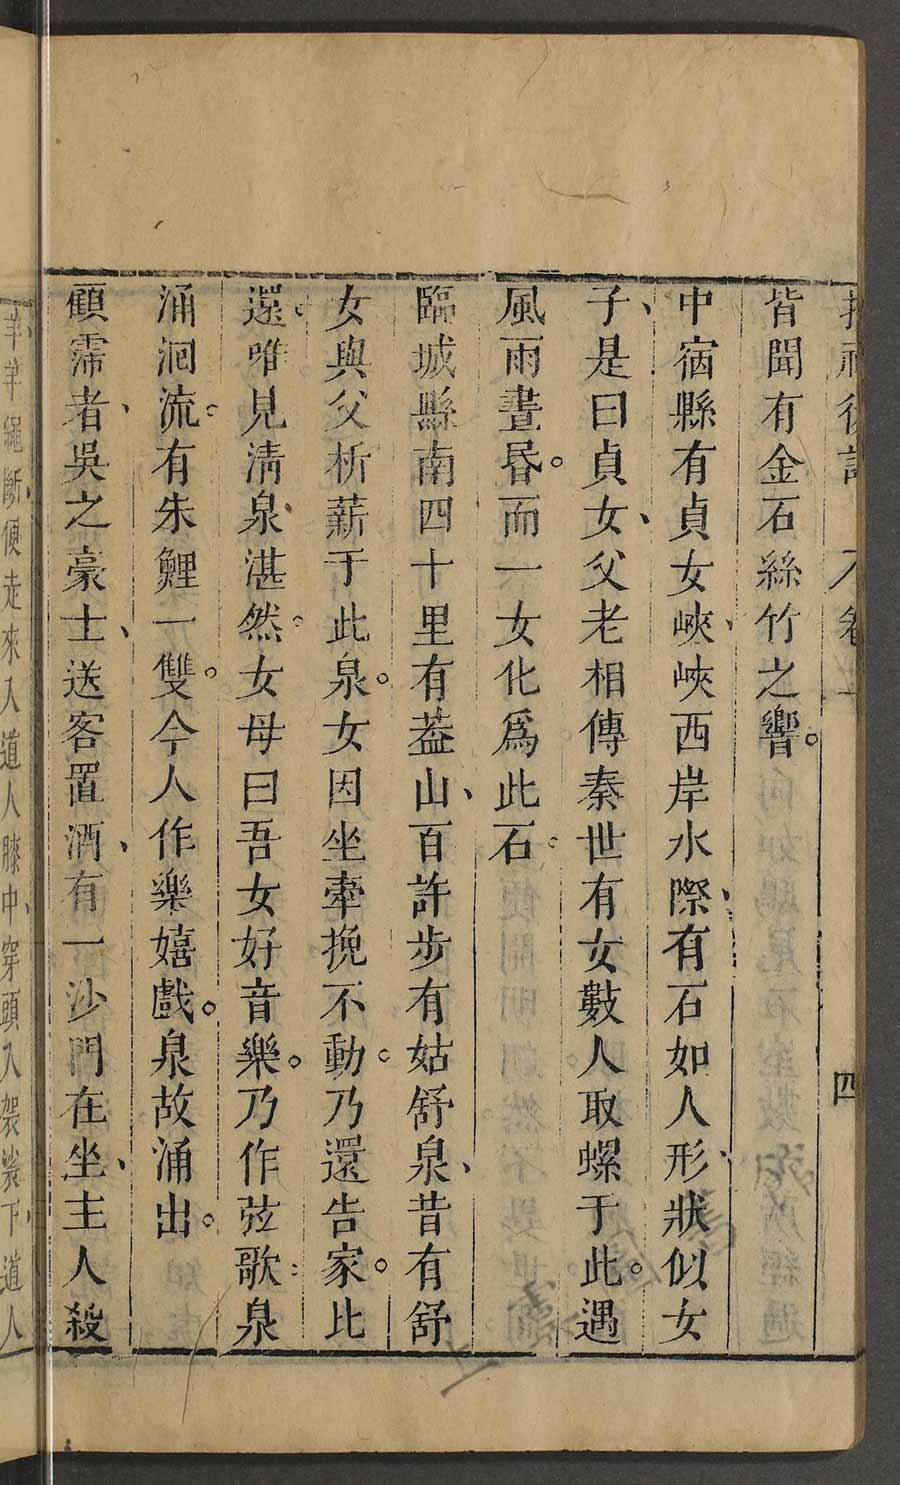 搜神後記 卷一 四
皆聞有金石絲竹之響。
中宿縣有貞女峽、峽西岸水際、有石如人形、狀似女
子、是曰貞女、父老相傳秦世有女數人取螺于此。遇
風雨晝昏。而一女化爲此石。
臨城縣南四十里有葢山、百許步有姑舒泉、昔有舒
女與父析薪于此泉。女因坐牽挽不動。乃還告家。比
還。唯見清泉、湛然。女母曰吾女好音樂。乃作弦歌。泉
涌洄流。有朱鯉一雙。今人作樂嬉戲。泉故涌出。
顧霈者、吳之豪士、送客置酒、有一沙門在坐、主人殺
羊羊繩斷、便走來入道人膝中、穿頭入袈裟下、道人